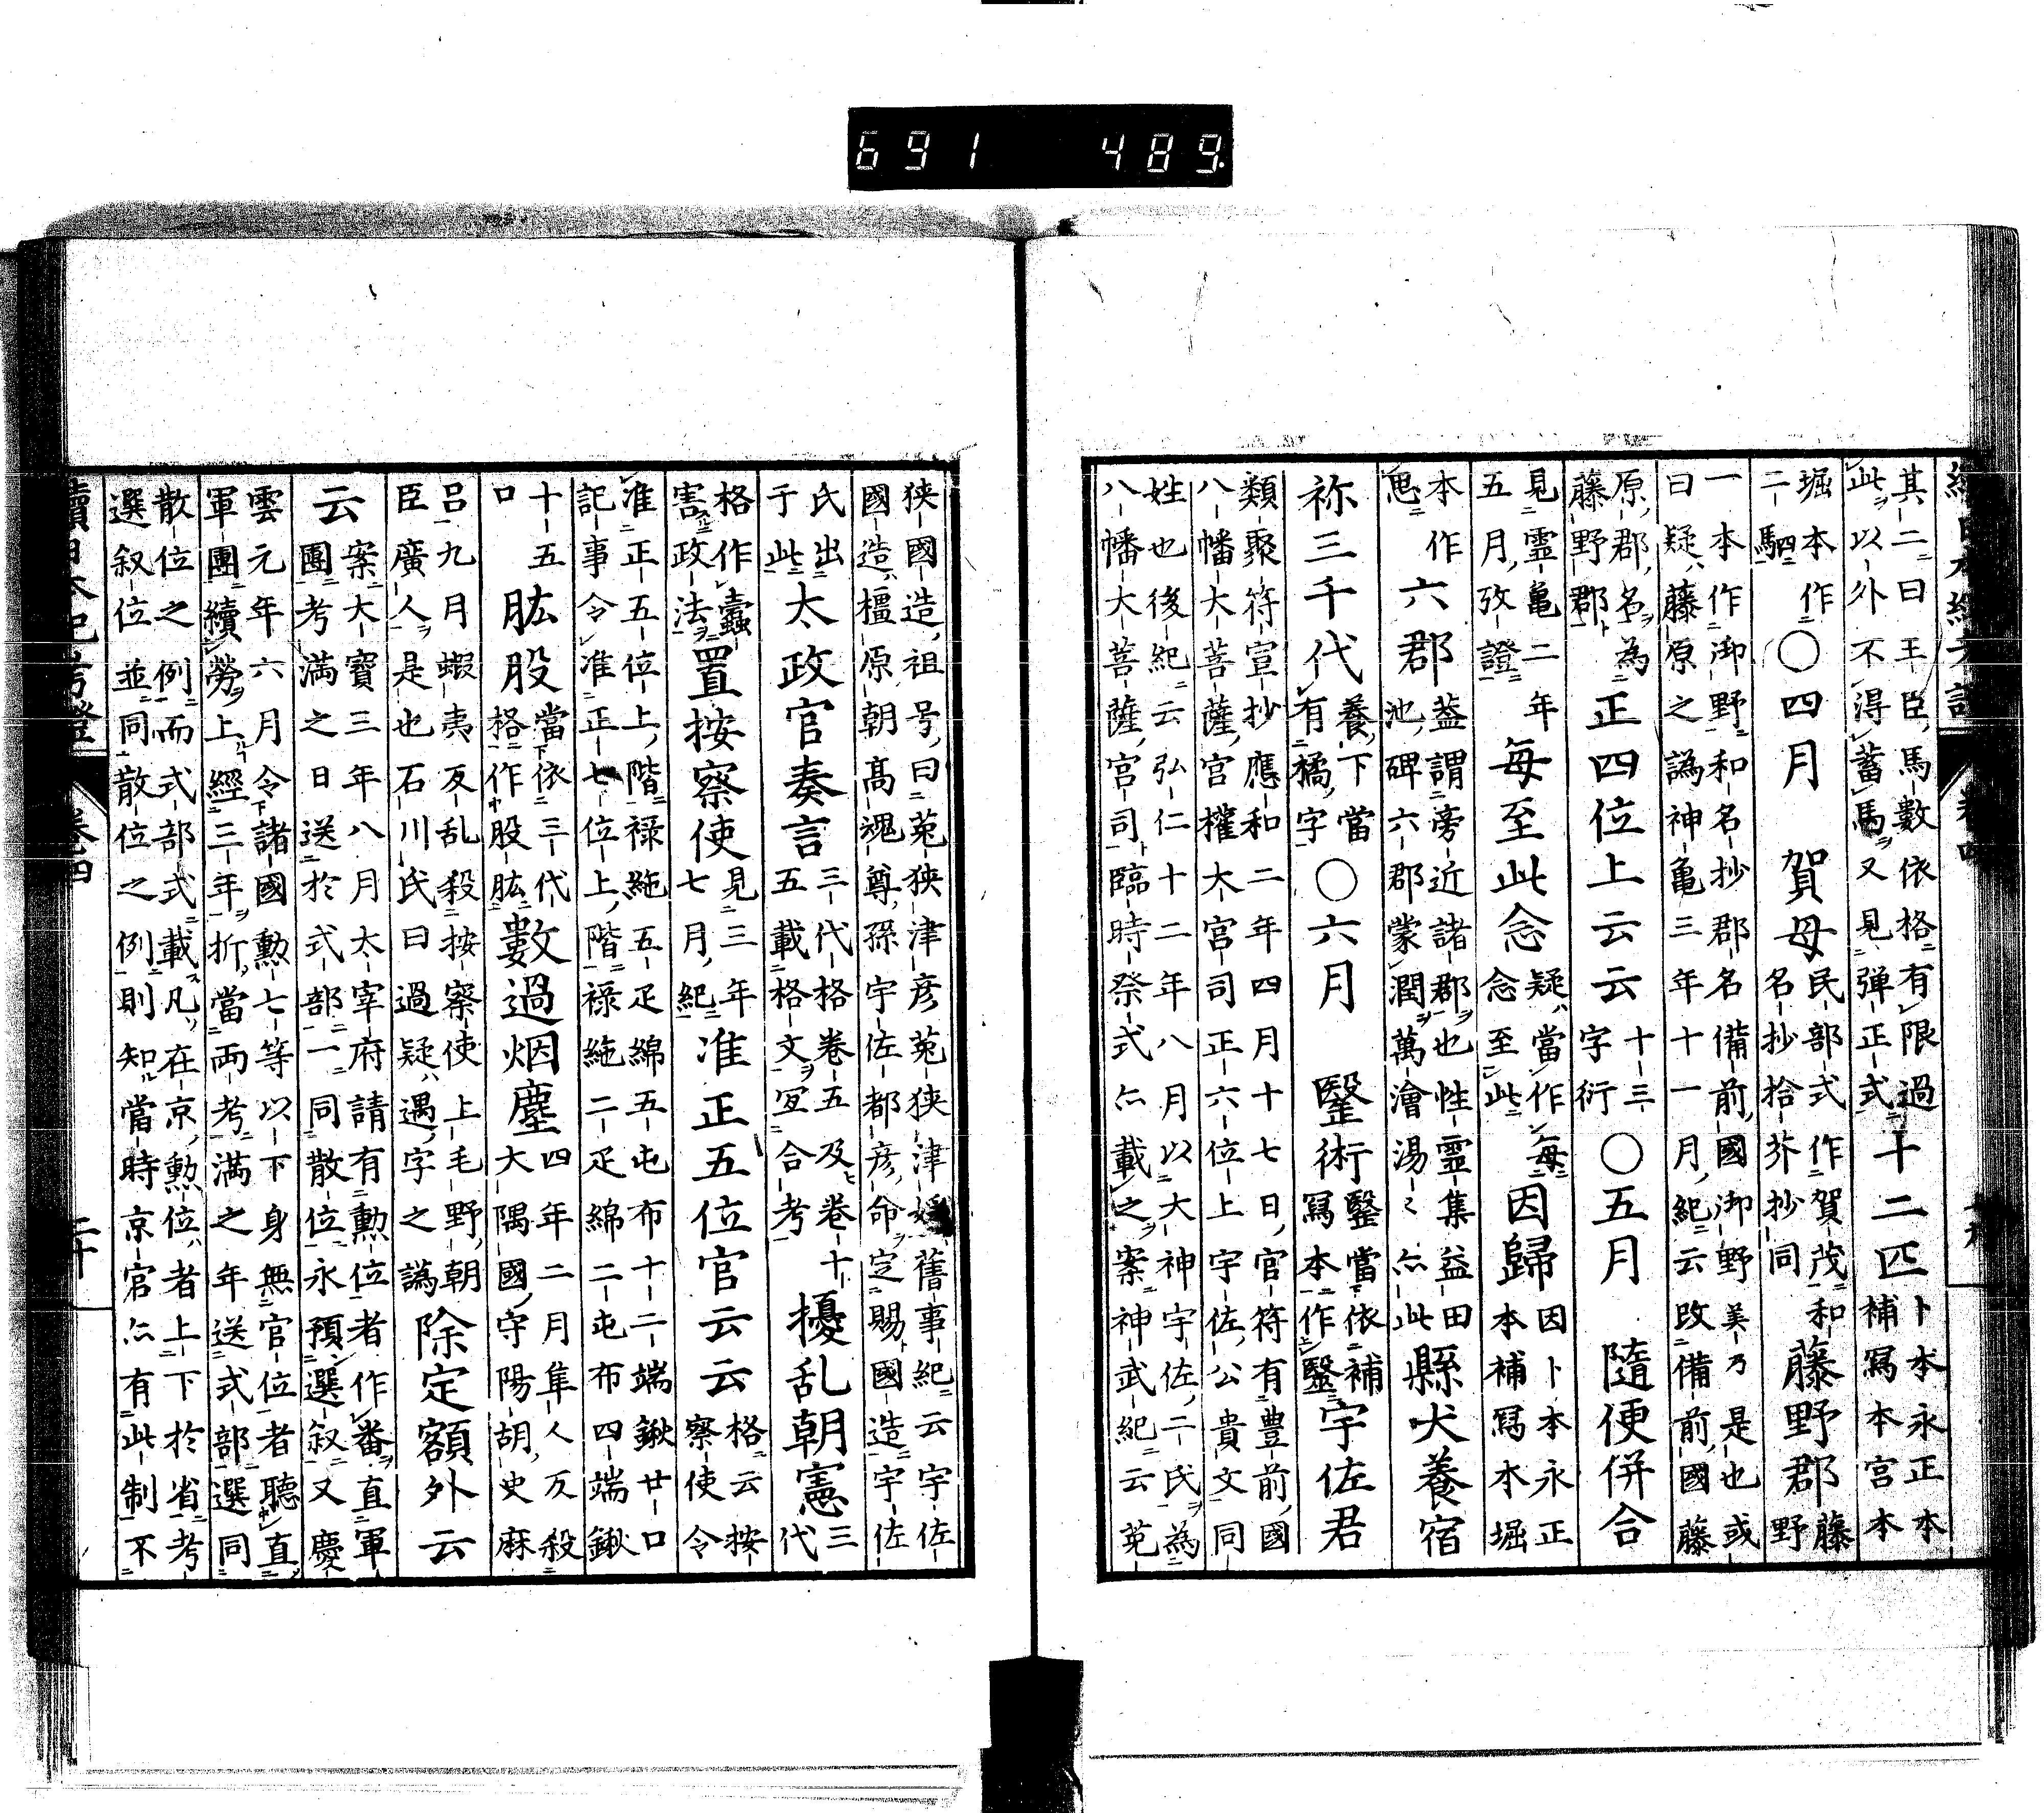 691 489.
其二曰王臣馬數依格有限過
此以外不得蓄馬又見彈正式
十二匹
卜本永正本
補寫本宮本
堀本作
二駟
〇四月　賀母
民部式作賀茂和
名抄拾芥抄同
藤野郡
藤
野
一本作御野和名抄郡名備前國御野美乃是也或
曰疑藤原之譌神亀三年十一月紀云改備前國藤
原郡名為
藤野郡
正四位上云云
十三
字衍
〇五月　隨便併合
見霊亀二年
五月攷證
每至此念
疑當作每
念至此
因歸
因卜本永正
本補寫本堀
本作
恖
六郡
益謂旁近諸郡也性霊集益田
池碑六郡蒙潤萬澮湯〻亦此
縣犬養宿
祢三千代
養下當
有橘字
〇六月　毉術
毉當依補
寫本作毉
宇佐君
類聚符宣抄應和二年四月十七日官符有豊前國
八幡大菩薩宮權大宮司正六位上宇佐公貴文同
姓也後紀云弘仁十二年八月以大神宇佐二氏為
八幡大菩薩宮司臨時祭式亦載之案神武紀云菟
狹國造祖号曰菟狹津彦菟狹津媛舊事紀云宇佐
國造橿原朝髙魂尊孫宇佐都彦命定賜國造宇佐
氏出
于此
太政官奏言
三代格卷五及卷十
五載格文宜合考
擾乱朝憲
三
代
格作蠹
害政法
置按察使
見三年
七月紀
准正五位官云云
格云按
察使令
准正五位上階祿絁五疋綿五屯布十二端鍬廿口
記事令准正七位上階祿絁二疋綿二屯布四端鍬
十五
口
肱股
當依三代
格作股肱
數過烟塵
四年二月隼人反殺
大隅國守陽胡史麻
呂九月蝦夷反乱殺按察使上毛野朝
臣廣人是也石川氏曰過疑遇字之譌
除定額外云
云
案大寶三年八月太宰府請有勲位者作番直軍
團考滿之日送於式部一同散位永預選叙又慶
雲元年六月令諸國勲七等以下身無官位者聽直
軍團續勞上經三年折當両考滿之年送式部選同
散位之例而式部式載凡在京勲位者上下於省考
選叙位並同散位之例則知當時京官亦有此制不
續日本紀考證　卷四　二十